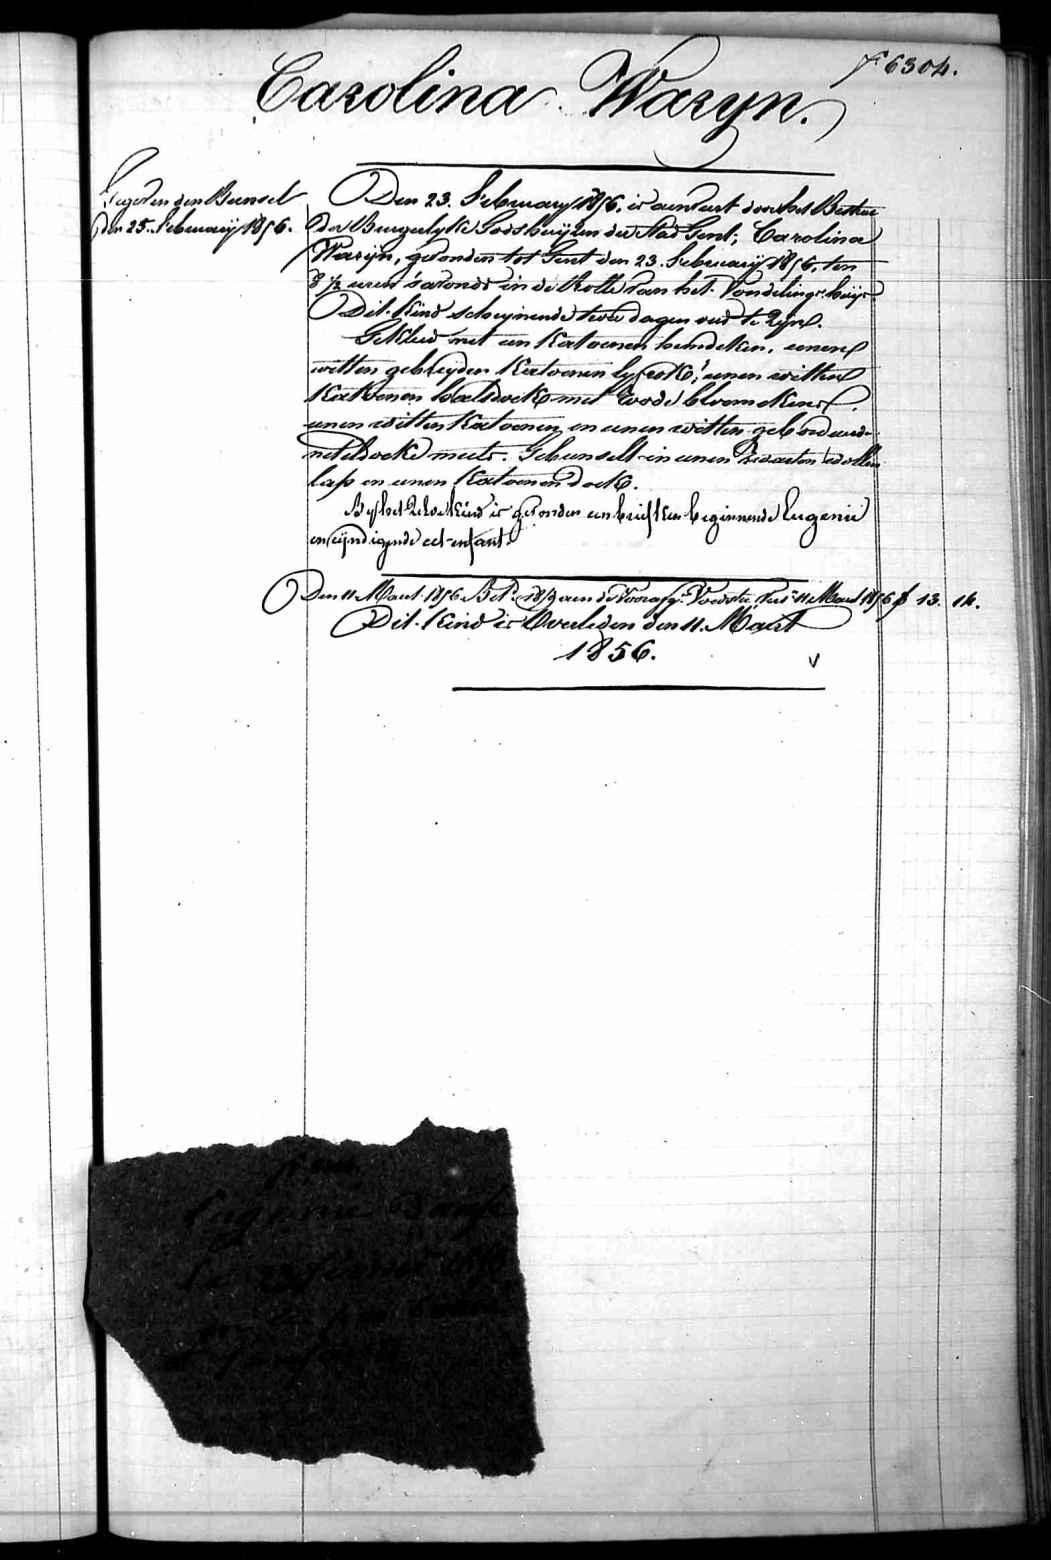 fo 6304.
Carolina Waryn.
Gegeven den Bunsel
den 25. February 1856.
Den 23. February 1856. is aenveert door het Bestier
der Burgerlyke Godshuyzen der Stad Gent; Carolina
Waryn, gevonden tot Gent den 23. February 1856, ten
8 ½ uren s'avonds in de Rolle van het Vondelings-huys
Dit Kind schynende twee dagen oud te Zyn.
Gekleed met een Katoenen hemdeken, eenen
witten gebreyden Katoenen lyfrok, eenen witten
Katoenen halsdoek met roode bloemekens,
eenen witten Katoenen, en eenen witten geborduurde
neteldoeke muts. Gebunselt in eenen zwarten wollen
lap en eenen Katoenen doek.
By het Zelve Kind is gevonden een briefken beginnende Eugenie
en eyndigende cet enfant.
Den 11 Maart 1856 Bet. aen de Voorafg. Voedster tus 11 Maart 1856 f 13. 14.
Dit Kind is Overleden den 11. Maart
1856.
Eugenie
Le 23